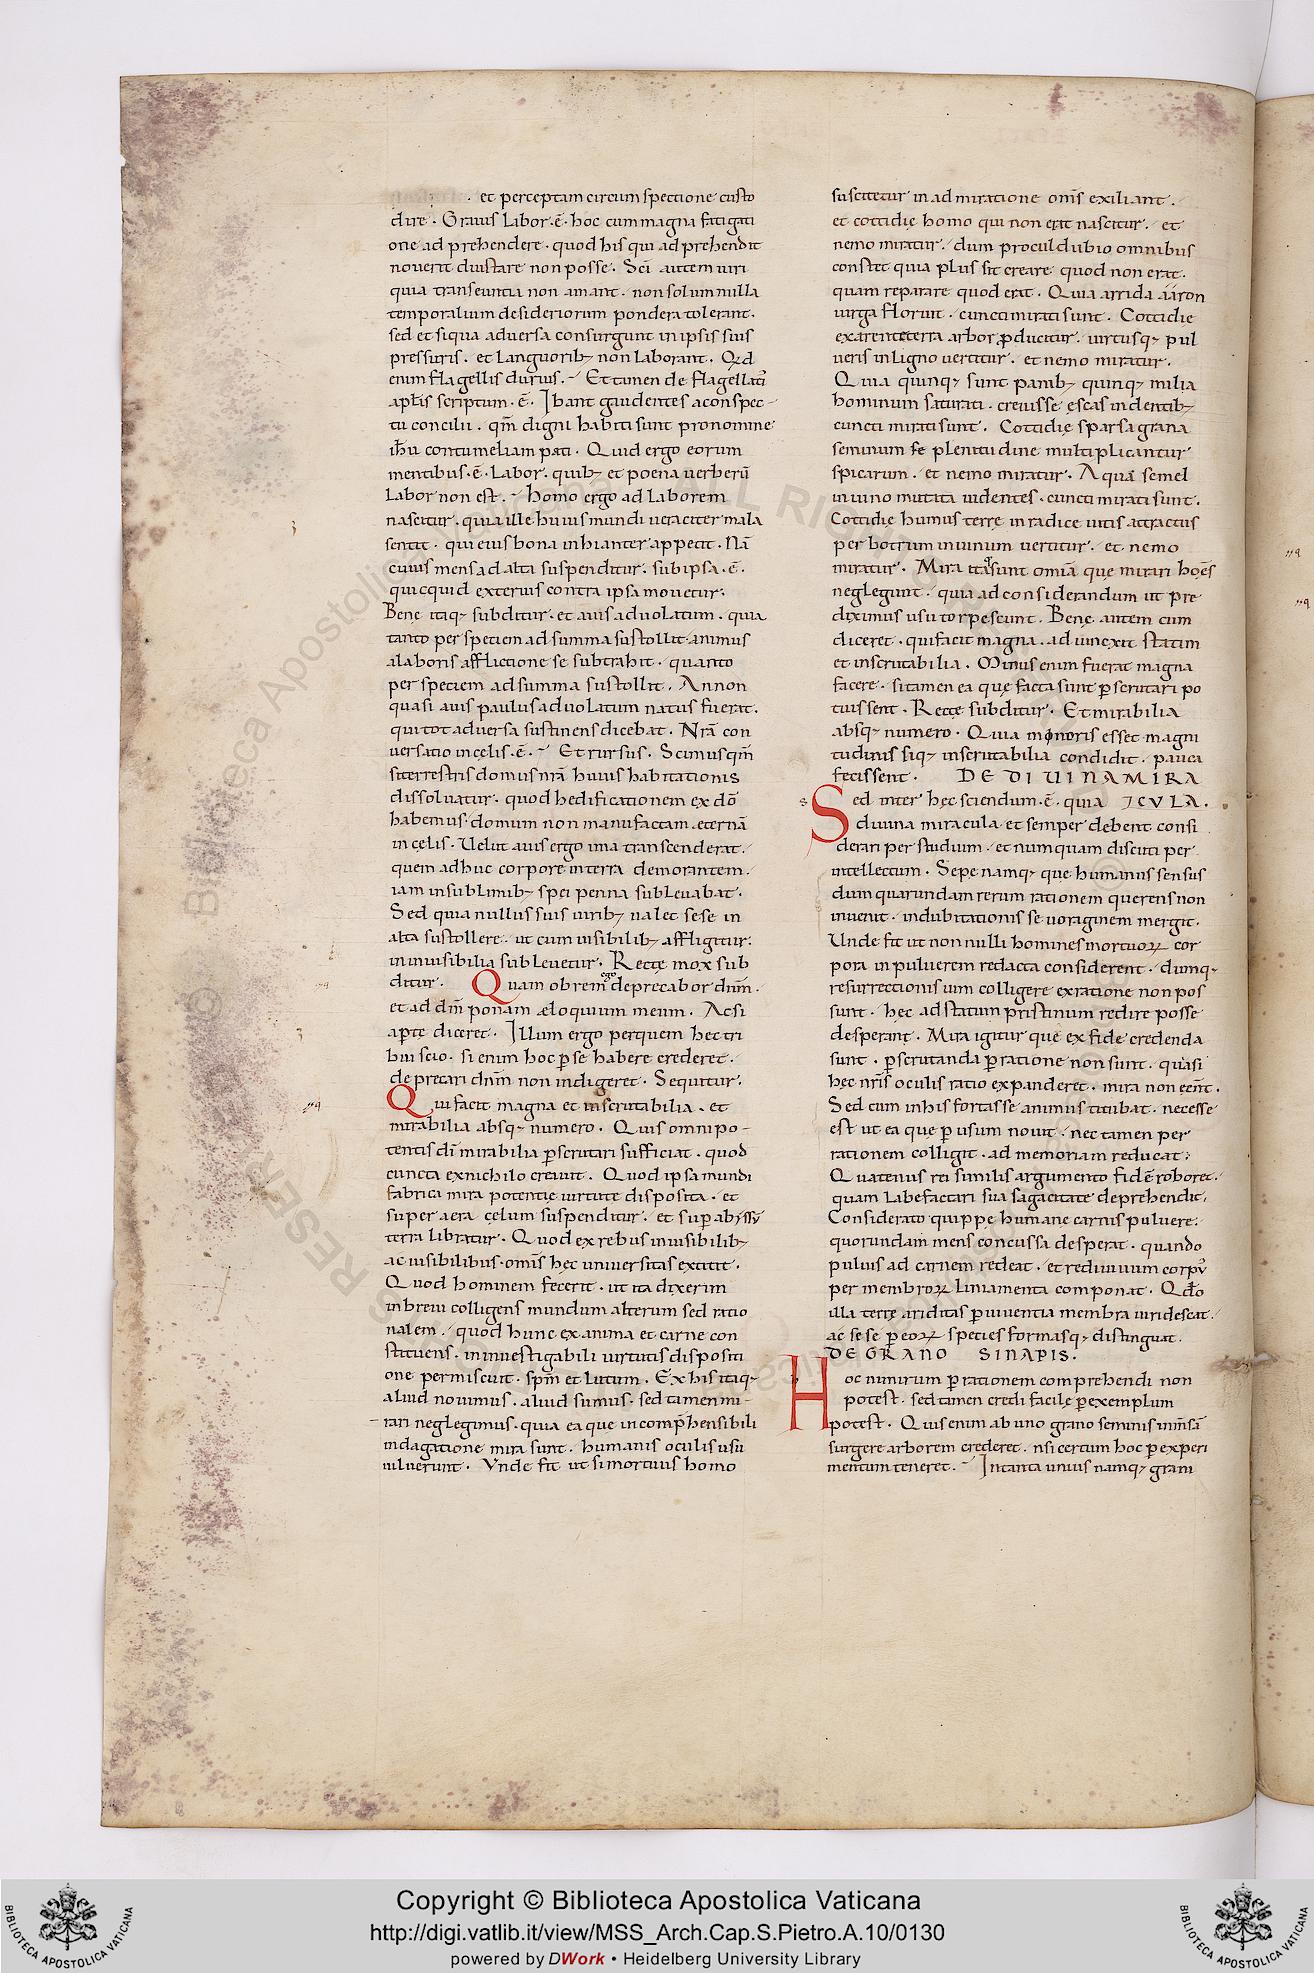 et perceptam circumspectione custo
dire. Grauis Labor .ē. hoc cum magna fatigati
one adprehendere. quod his qui adprehendit
nouerit diu stare non posse. Sc̄i autem uiri
quia transeuntia non amant. non solum nulla
temporalium desideriorum pondera tolerant.
sed et siqua aduersa consurgunt in ipsis suis
pressuris. et languorib; non laborant. Qd
enim flagellis durius. Et tamen de flagellatis
apl̄is scriptum .ē. Ibant gaudentes a conspec-
tu concilii. qm̄ digni habiti sunt pro nomine
ih̄u contumeliam pati. Quid ergo eorum
mentibus .ē. Labor. quib; et poena uerberū
Labor non est. homo ergo ad laborem
nascitur. quia ille huius mundi ueraciter mala
sentit. qui eius bona inhianter appetit. Nā
cuius mens ad alta suspenditur. sub ipsa .ē.
quicquid exterius contra ipsa mouetur.
Bene itaq; subditur. et auis ad uolatum. quia
tanto per speciem ad summa sustollit animus
a laboris afflictione se subtrahit. quanto
per speciem ad summa sustollit. An non
quasi auis paulus ad uolatum natus fuerat.
qui tot aduersa sustinens dicebat. Nrā con
uersatio in cęlis .ē. Et rursus. Scimus qm̄
si terrestris domus nrā huius habitationis
dissoluatur. quod hedificationem ex dō
habemus. domum non manufactam. eternā
in cęlis. Uelut auis ergo ima transcenderat.
quem adhuc corpore in terra demorantem.
iam in sublimib; spei penna subleuabat.
Sed quia nullus suis uirib; ualet sese in
alta sustollere. ut cum uisibilib; affligitur.
in inuisibilia subleuetur. Recte mox sub
ditur. Quam obrem ego deprecabor dnm̄.
et ad dm̄ ponam æloquium meum. Ac si
aperte diceret. Illum ergo per quem hec tri
bui scio. si enim hoc p̱ se habere crederet.
deprecari dnm̄ non indigeret. Sequitur.
Qui facit magna et inscrutabilia. et
mirabilia absq; numero. Quis omnipo-
tentis dī mirabilia p̱scrutari sufficiat. quod
cuncta ex nichilo creauit. Quod ipsa mundi
fabrica mira potentię uirtute disposita. et
super aera cęlum suspenditur. et sup̱ abyssū
terra libratur. Quod ex rebus inuisibilib;
ac uisibilibus. omīs hęc uniuersitas extitit.
Quod hominem fecerit. ut ita dixerim
in breui colligens mundum alterum sed ratio
nalem. quod hunc ex anima et carne con
stituens. in inuestigabili uirtutis dispositi
one permiscuit. spm̄ et lutum. Ex his itaq;
aliud nouimus. aliud sumus. sed tamen mi-
rari neglegimus. quia ea que incomp̄hensibili
indagatione mira sunt. humanis oculis usu
uiluerunt. Unde fit ut si mortuus homo
suscitetur in admiratione omīs exiliant.
et cottidie homo qui non erat nascitur. et
nemo miratur. dum procul dubio omnibus
constet quia plus sit creare quod non erat.
quam reparare quod erat. Quia arrida aaron
uirga floruit. cuncti mirati sunt. Cottidie
ex arente terra arbor ꝓducitur. uirtusq; pul
ueris in ligno uertitur. et nemo miratur.
Quia quinq; sunt panib; quinq; milia
hominum saturati. creuisse ęscas in dentib;
cuncti mirati sunt. Cottidię sparsa grana
seminum plenitudine multiplicantur
spicarum. et nemo miratur. Aquā semel
in uino mutata uidentes. cuncti mirati sunt.
Cottidie humus terrę in radice uitis attractus
per botrum in uinum uertitur. et nemo
miratur. Mira itaq; sunt omīa que mirari hoēs
neglegunt. quia ad considerandum ut pre
diximus usu torpescunt. Bene autem cum
diceret. qui facit magna. adiunexit statim
et inscrutabilia. Minus enim fuerat magna
facere. si tamen ea quę facta sunt p̱scrutari po
tuissent. Recte subditur. Et mirabilia
absq; numero. Quia minoris esset magni
tudinis si q; inscrutabilia condidit. pauca
fecissent. DE DIUINA MIRA
Sed inter hęc sciendum .ē. quia ICULA.
diuina miracula et semper debent consi
derari per studium. et numquam discuti per
intellectum. Sepe namq; que humanus sensus
dum quarundam rerum rationem querens non
inuenit. in dubitationis se uoraginem mergit.
Unde fit ut non nulli homines mortuoꝝ cor
pora in puluerem redacta considerent. dumq;
resurrectionis uim colligere ex ratione non pos
sunt. hęc ad statum pristinum redire posse
desperant. Mira igitur que ex fide credenda
sunt. p̱scrutanda p̱ ratione non sunt. quasi
hęc nrīs oculis ratio expanderet. mira non eent̄.
Sed cum in his fortasse animus titubat. necesse
est ut ea que p̱ usum nouit. nec tamen per
rationem colligit. ad memoriam reducat.
Quatenus rei similis argumento fidē roboret.
quam labefactari sua sagacitate deprehendit.
Considerato quippe humane carnis puluere.
quorundam mens concussa desperat. quando
puluis ad carnem redeat. et rediuiuum corpus
per membroꝝ liniamenta componat. Qdo
illa terrę ariditas p̱ uiuentia membra uiridescat.
ac sese p̱ eoꝝ species formasq; distinguat.
DE GRANO SINAPIS.
Hoc nimirum p̱ rationem comprehendi non
potest. sed tamen credi facile p̱ exemplum
potest. Quis enim ab uno grano seminis inm̄sā
surgere arborem crederet. nsi certum hoc p̱ experi
mentum teneret. In tanta unius namq; grani
Copyright © Biblioteca Apostolica Vaticana
http://digi.vatlib.it/view/MSS_Arch.Cap.S.Pietro.A.10/0130
powered by DWork • Heidelberg University Library
BIBLIOTECA APOSTOLICA VATICANA
BIBLIOTECA APOSTOLICA VATICANA